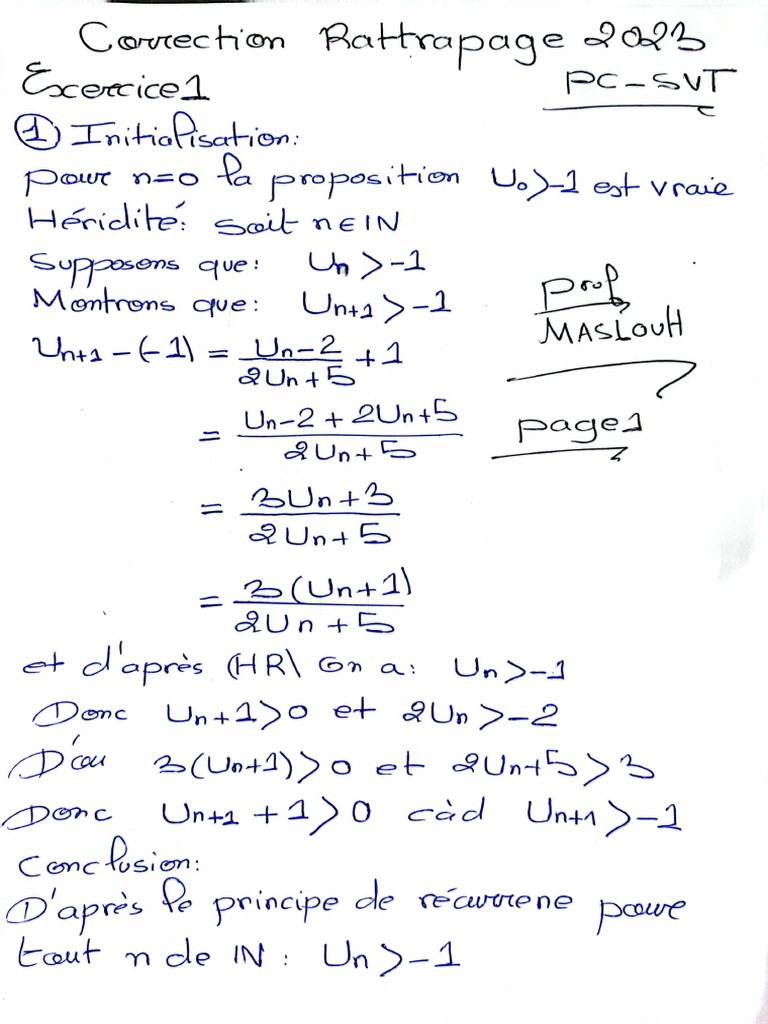 Correction Rattrapage 2023
Exercice1
PC-SVT
① Initialisation:
pour n=0 la proposition U₀>-1 est vraie
Héridité: Soit n∈IN
Supposons que: Uₙ>-1
Montrons que: Uₙ₊₁>-1
prof
MASLOUH
Uₙ₊₁-(-1) = (Uₙ-2)/(2Uₙ+5) + 1
= (Uₙ-2+2Uₙ+5)/(2Uₙ+5)
page1
= (3Uₙ+3)/(2Uₙ+5)
= 3(Uₙ+1)/(2Uₙ+5)
et d'après (HR) On a: Uₙ>-1
Donc Uₙ+1>0 et 2Uₙ>-2
D'où 3(Uₙ+1)>0 et 2Uₙ+5>3
Donc Uₙ₊₁+1>0 càd Uₙ₊₁>-1
Conclusion:
D'après le principe de récurrene pour
tout n de IN: Uₙ>-1